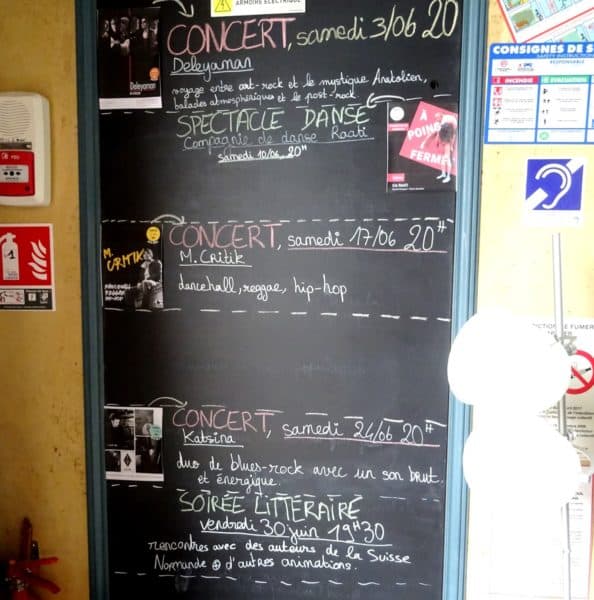 ARMOIRE ÉLECTRIQUE
CONCERT, samedi 3/06 20
Deleyaman
voyage entre art-rock et le mystique Anatolien,
balades atmosphériques et le post-rock.
Deleyaman
SPECTACLE DANSE
Compagnie de danse Raati
samedi 10/06 20H
À
POING
FERMÉ
CONCERT, samedi 17/06 20H
M. Critik
dancehall, reggae, hip-hop
M.
CRITIK
DANCEHALL
REGGAE
HIP-HOP
CONCERT, samedi 24/06 20H
Katsina
duo de blues-rock avec un son brut
et énergique.
SOIRÉE LITTÉRAIRE
vendredi 30 juin 19H30
rencontres avec des auteurs de la Suisse
Normande ⊕ d'autres animations.
CONSIGNES DE S
SAFETY INSTRUCTION
RESPONSABLE
INCENDIE
ÉVACUATION
DICTION DE FUMER